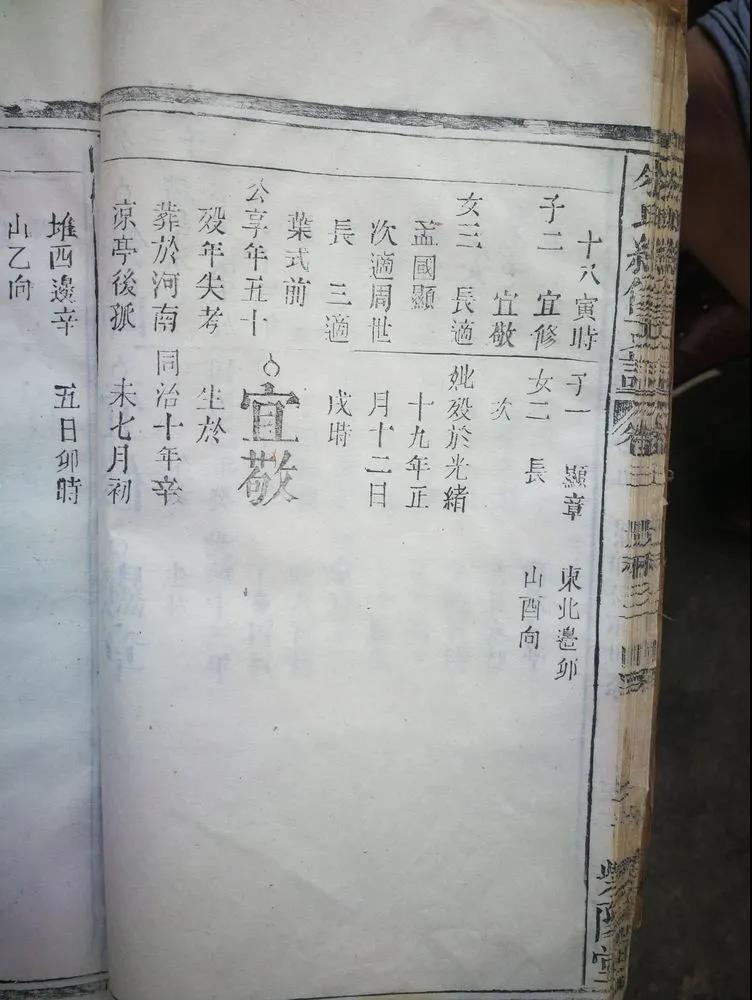 紫陽堂
十八寅時
子二 宜修
宜敬
女三 長適
孟國顯
次適周世
長 三適
葉式前
公享年五十
歿年失考
葬於河南
涼亭後孤
堆西邊辛
山乙向
子一 顯章
女二 長
次
妣歿於光緒
十九年正
月十二日
戌時
宜敬
生於
同治十年辛
未七月初
五日卯時
東北邊卯
山酉向